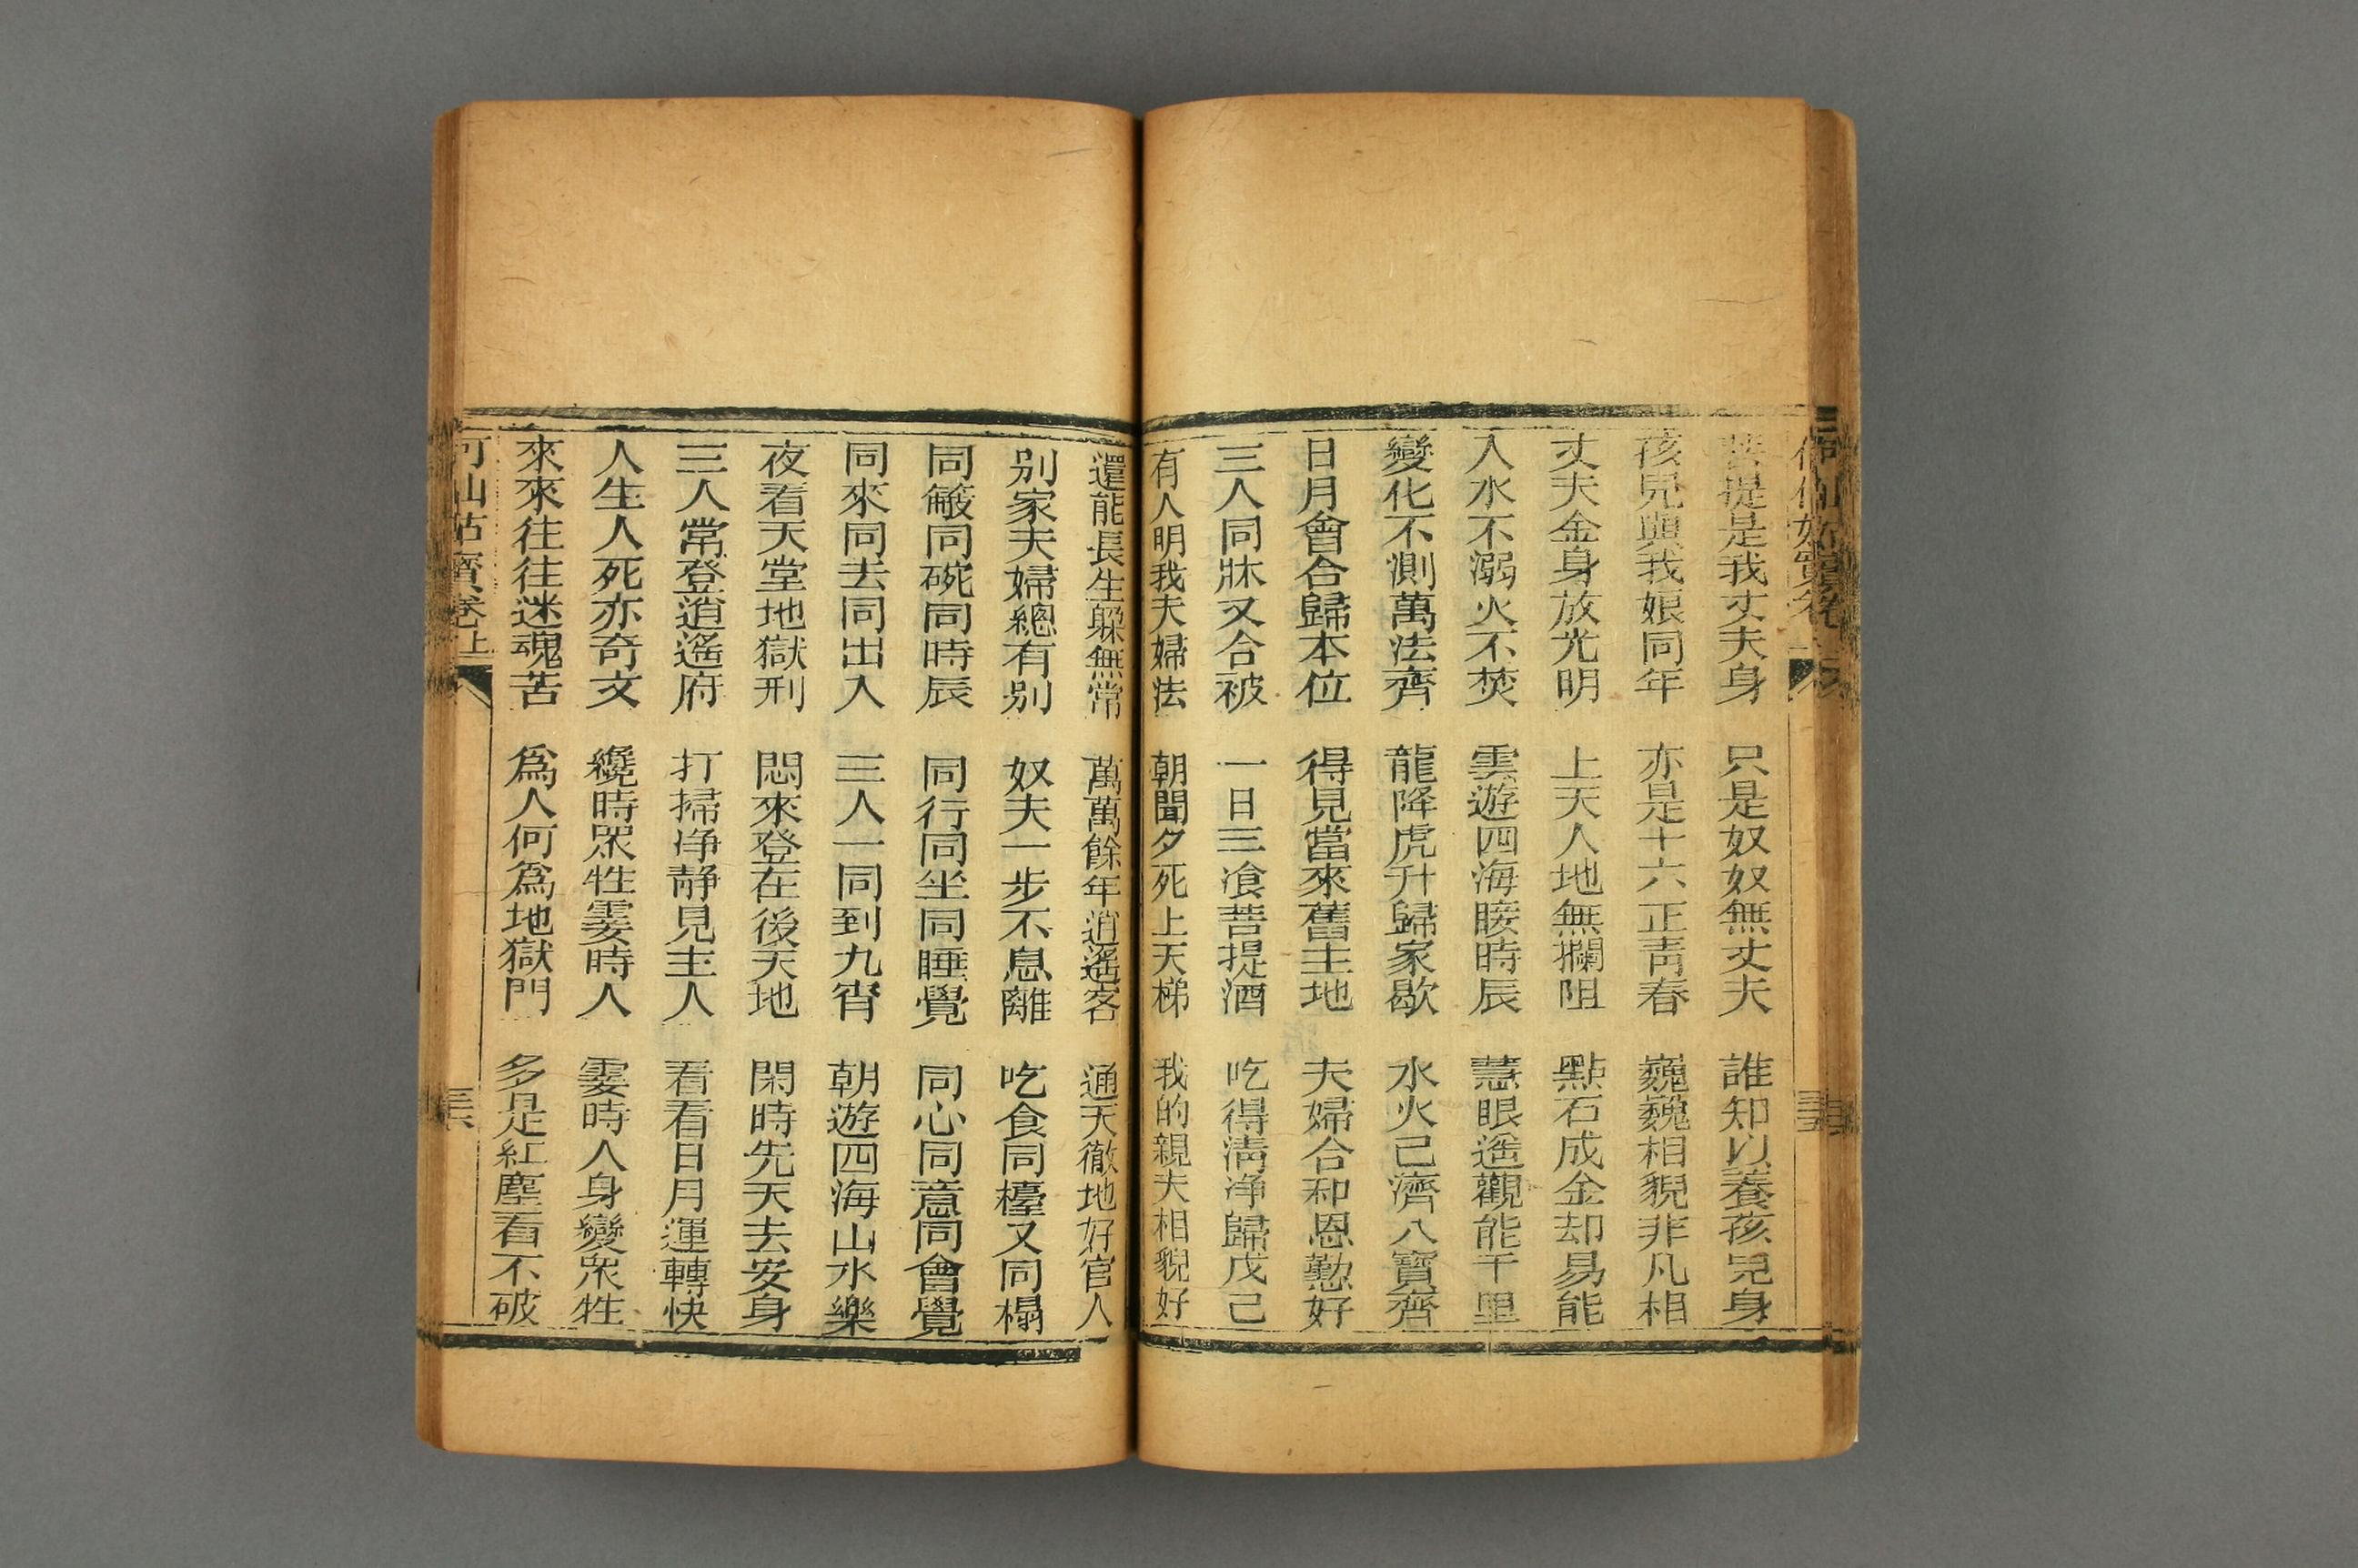 何仙姑寶卷上
菩提是我丈夫身 只是奴奴無丈夫 誰知以養孩兒身
孩兒與我娘同年 亦是十六正靑春 巍巍相貌非凡相
丈夫金身放光明 上天人地無攔阻 點石成金却易能
入水不溺火不焚 雲遊四海睖時辰 慧眼遙觀能千里
變化不測萬法齊 龍降虎升歸家歇 水火已濟八寶齊
日月會合歸本位 得見當來舊主地 夫婦合和恩懃好
三人同牀又合被 一日三飡菩提酒 吃得淸净歸戊己
有人明我夫婦法 朝聞夕死上天梯 我的親夫相貌好
還能長生躱無常 萬萬餘年逍遙客 通天徹地好官人
别家夫婦總有别 奴夫一步不息離 吃食同檯又同榻
同𥮾同碗同時辰 同行同坐同睡覺 同心同意同會覺
同來同去同出入 三人一同到九宵 朝遊四海山水樂
夜看天堂地獄刑 悶來登在後天地 閑時先天去安身
三人常登逍遙府 打掃净静見主人 看看日月運轉快
人生人死亦奇文 纔時眾牲霎時人 霎時人身變眾牲
來來往往迷魂苦 爲人何爲地獄門 多是紅塵看不破
何仙姑寶卷上 三六